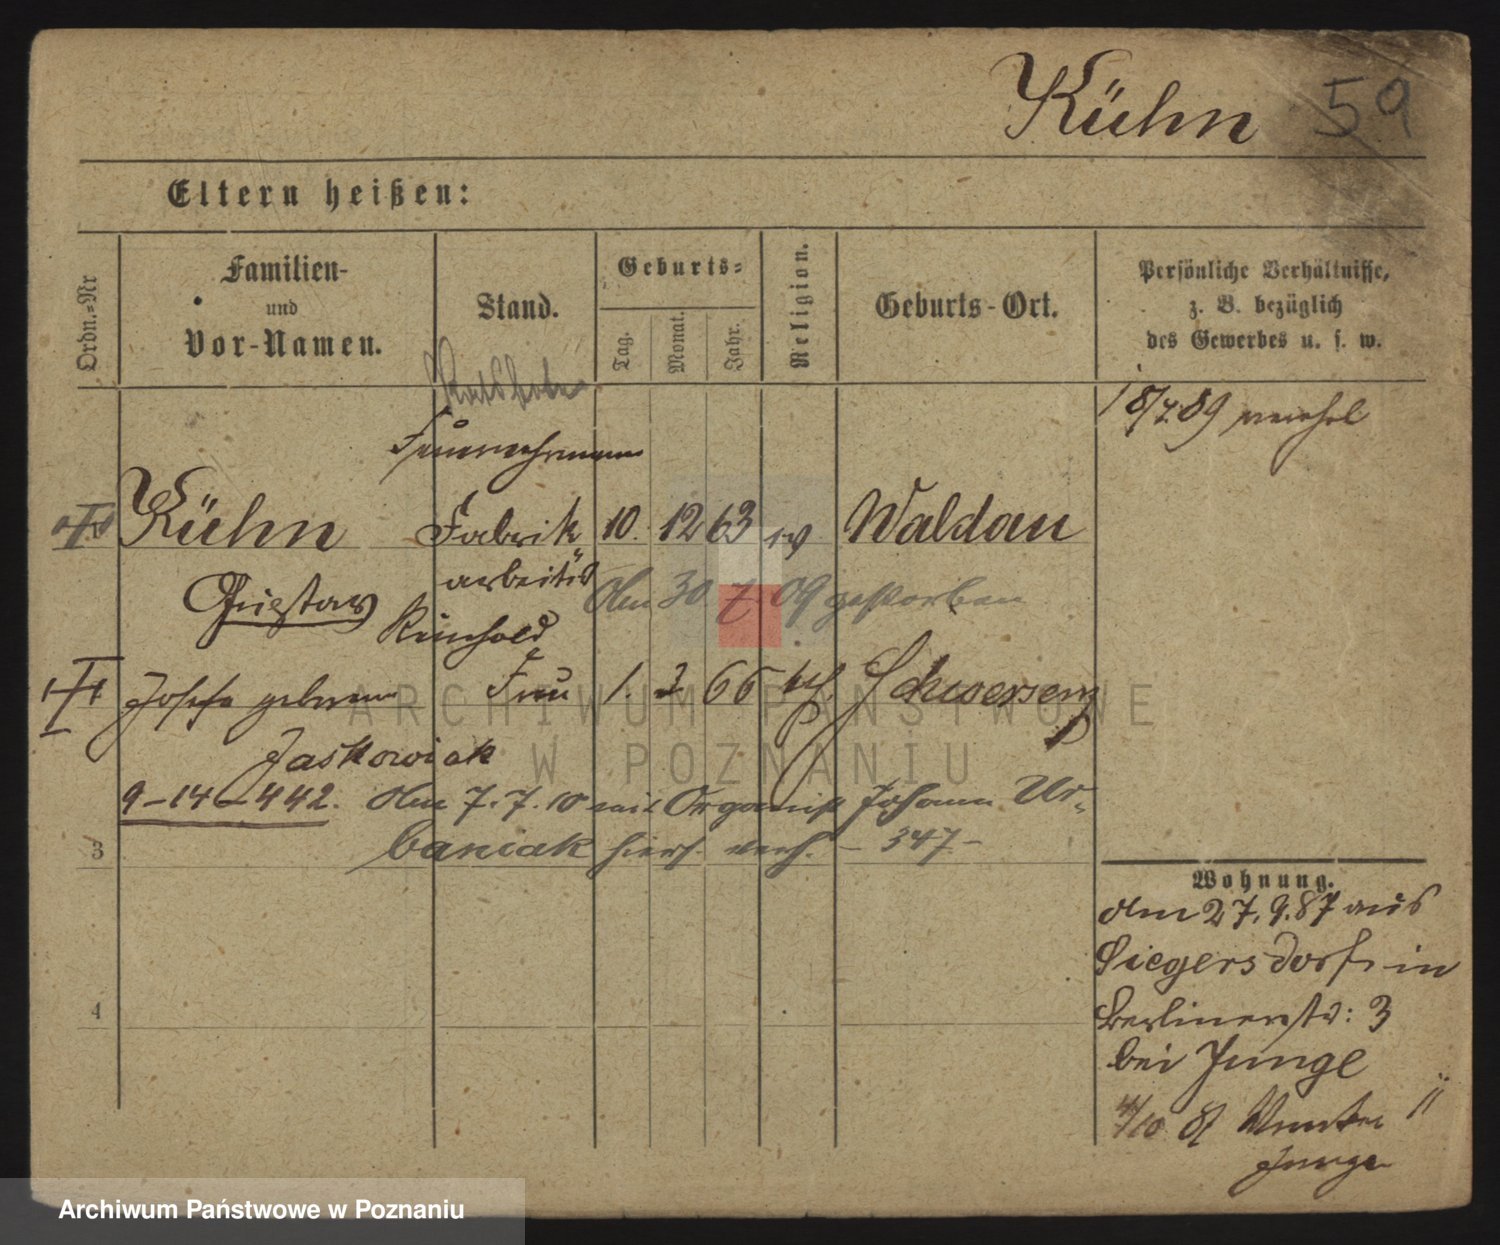 Kühn 59
Eltern heißen:
Ordn.=Nr
Familien-
und
Vor-Namen.
Stand.
Geburts=
Tag.
Monat.
Jahr.
Religion.
Geburts-Ort.
Persönliche Verhältnisse,
z. B. bezüglich
des Gewerbes u. s. w.
18/7 89
Feuerwehrmann
Kühn Fabrik 10. 12 63 ev Waldau
arbeiter
Gustav
Am 30 7 09 gestorben
Reinhold
Josefa geborene Frau 1. 3 66 kth. Schwersenz
Jaskowiak
9-14-442. Am 7. 7. 10 mit Organist Johann Ur-
baniak hiers. verh. - 347 -
3
4
Wohnung.
Am 27. 9. 87 aus
Siegersdorf in
Berlinerstr: 3
bei Junge
4/10 87 11
Junge
ARCHIWUM PAŃSTWOWE
W POZNANIU
Archiwum Państwowe w Poznaniu